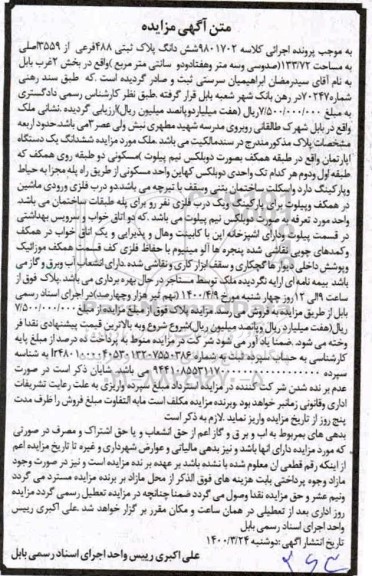 متن آگهی مزایده
به موجب پرونده اجرائی کلاسه ۹۸۰۱۷۰۲شش دانگ پلاک ثبتی ۴۸۸فرعی از ۳۵۵۹اصلی
به مساحت ۱۳۳/۷۲(صدوسی وسه متر وهفتادودو سانتی متر مربع)واقع در بخش ۲غرب بابل
به نام آقای سیدرمضان ابراهیمیان سرستی ثبت و صادر گردیده است .که طبق سند رهنی
شماره۷۰۲۴۷در رهن بانک شهر شعبه بابل قرار گرفته .طبق نظر کارشناس رسمی دادگستری
به مبلغ ۷/۵۰۰/۰۰۰/۰۰۰ریال (هفت میلیاردوپانصد میلیون ریال)ارزیابی گردیده .نشانی ملک
واقع در بابل شهرک طالقانی روبروی مدرسه شهید مطهری نبش ولی عصر۳می باشد.حدود اربعه
مشخصات پلاک مذکورمندرج در سندمالکیت می باشد .ملک مورد مزایده ششدانگ یک دستگاه
آپارتمان واقع در طبقه همکف بصورت دوبلکس نیم پیلوت )مسکونی دو طبقه روی همکف که
طبقه اول ودوم هر کدام تک واحدی دوبلکس کهاین واحد مسکونی از طریق راه پله مجزا به حیاط
وپارکینگ دارد واسکلت ساختمان بتنی وسقف با تیرچه می باشد.دو درب فلزی ورودی ماشین
در همکف وپیلوت برای پارکینگ ویک درب فلزی نفر رو برای پله طبقات ساختمان می باشد.
واحد مورد تعرفه به صورت دوبلکس نیم پیلوت می باشد .که دو اتاق خواب و سرویس بهداشتی
در قسمت پیلوت ودارای آشپزخانه اپن با کابینت وهال و پذیرایی و یک اتاق خواب در همکف
وکمدهای چوبی نقاشی شده پنجره ها آلو مینیوم با حفاظ فلزی کف قسمت همکف موزائیک
وپوشش داخلی دیوار ها گچکاری و سقف ابزار کاری و نقاشی شده دارای انشعاب آب وبرق و گاز می
باشد بیمه نامه ای ارایه نگردیده ملک توسط مستاجر در حال بهره برداری می باشد .پلاک فوق از
ساعت ۹الی ۱۲ روز چهار شنبه مورخ ۱۴۰۰/۴/۹ (نهم تیر هزار وچهارصد)در اجرای اسناد رسمی
بابل از طریق مزایده به فروش می رسد. مزایده پلاک فوق از مبلغ مزایده از مبلغ ۷/۵۰۰/۰۰۰/۰۰۰
ریال(هفت میلیارد ریال وپانصد میلیون ریال)شروع شروع وبه بالاترین قیمت پیشنهادی نقدا فر
وخته می شود .ضمنا یاد آور می شود شر کت در مزایده منوط به پرداخت ده درصد از مبلغ پایه
کارشناسی به حساب سپرده ثبت به شماره IR۴۸۰۱۰۰۰۰۴۰۵۳۰۱۳۲۰۷۵۵۰۳۸۶ به شناسه
سپرده ۹۴۴۱۰۸۵۵۳۱۱۷۰۰۰۰۰۰۰۰۰۰۰۰۰۰۰ می باشد شایان ذکر است در صورت
عدم بر نده شدن شر کت کننده در مزایده استرداد مبلغ سپرده واریزی به علت رعایت تشریفات
اداری وقانونی زمانبر خواهد بود وبرنده مزایده مکلف است مابه التفاوت مبلغ فروش را ظرف مدت
پنج روز از تاریخ مزایده واریز نماید .لازم به ذکر است
بدهی های بمربوط به آب و بر ق و گاز اعم از حق انشعاب و یا حق اشتراک و مصرف در صورتی
که مورد مزایده دارای انها باشد و نیز بدهی مالیاتی و عوارض شهرداری و غیره تا تاریخ مزایده اعم
از اینکه رقم قطعی ان معلوم شده یا نشده باشد بر عهده بر نده مزایده است و نیز در صورت وجود
مازاد وجوه پرداختی بابت هزینه های فوق الذکر از محل مازاد بر برنده مزایده مسترد می گردد
ونیم عشر و حق مزایده نقدا وصول می گردد ضمنا چنانچه در مزایده تعطیل رسمی گردد مزایده
روز اداری بعد از تعطیلی در همان ساعت و مکان مقرر بر گزار خواهد شد .علی اکبری رییس
واحد اجرای اسناد رسمی بابل
تاریخ انتشار آگهی:دوشنبه ۱۴۰۰/۳/۲۴
علی اکبری رییس واحد اجرای اسناد رسمی بابل